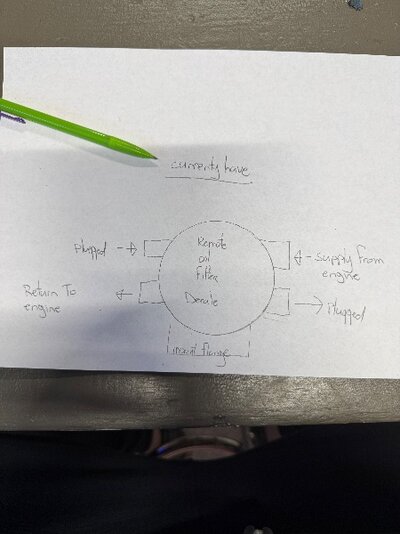 currently have
Plugged
Remote
oil
Filter
Derale
supply from
engine
Return To
engine
Plugged
mount flange